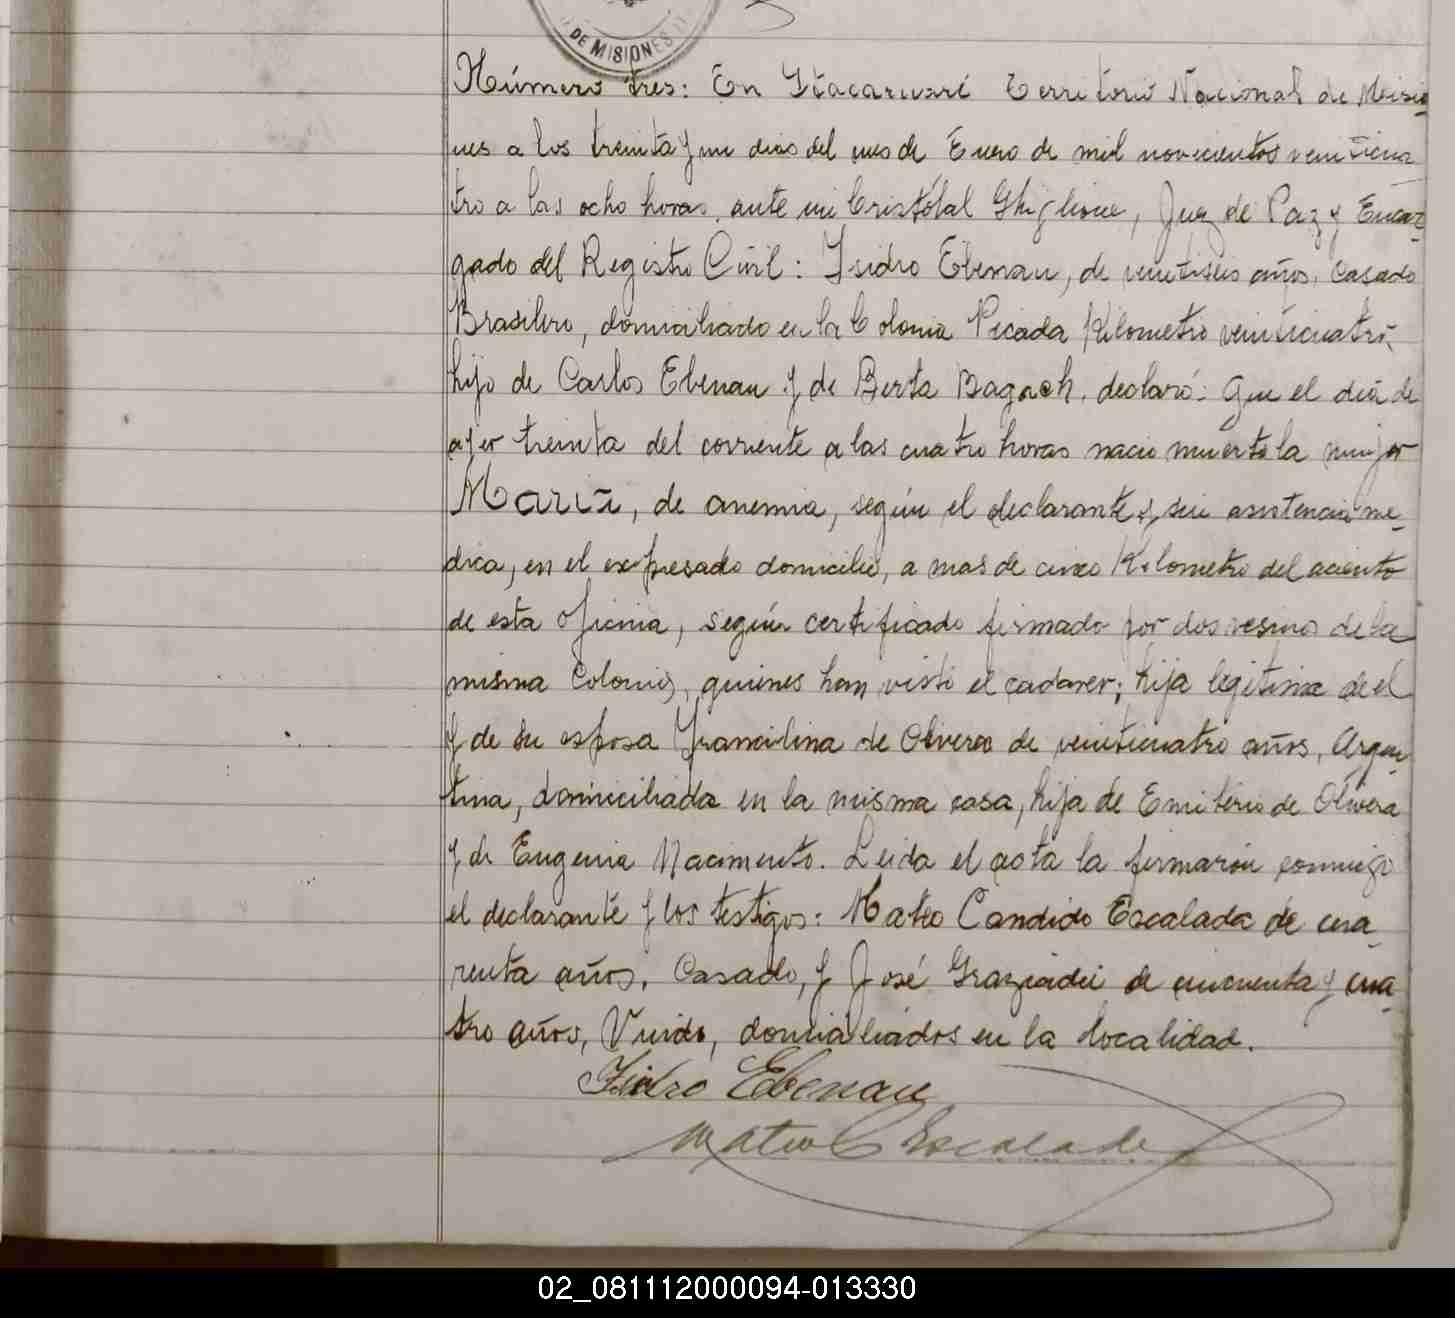 DE MISIONES
Número tres: En Itacaruaré Territorio Nacional de Misio-
nes a los treinta y un dias del mes de Enero de mil novecientos veinticua
tro a las ocho horas, ante mi Cristóbal Ghiglione, Juez de Paz y Encar-
gado del Registro Civil: Isidro Ebenau, de veintiseis años, casado
Brasilero, domiciliado en la Colonia Picada Kilometro veinticuatro,
hijo de Carlos Ebenau y de Berta Bagach, declaró: Que el día de
ayer treinta del corriente a las cuatro horas nacio muerta la mujer
María, de anemia, según el declarante y sin asistencia me-
dica, en el expresado domicilio, a mas de cinco Kilometro del aciento
de esta oficina, según certificado firmado por dos vesinos de la
misma Colonia, quienes han visto el cadaver; hija legitima de el
y de su esposa Francilina de Olivera de veinticuatro años, Argen-
tina, domiciliada en la misma casa, hija de Emiterio de Olivera
y de Eugenia Nacimento. Leida el acta la firmarón conmigo
el declarante y los testigos: Mateo Candido Escalada de cua-
renta años, Casado, y José Graziadei de cincuenta y cua-
tro años, Viudo, domiciliados en la localidad.
Isidro Ebenau
Mateo C Escalada
02_081112000094-013330